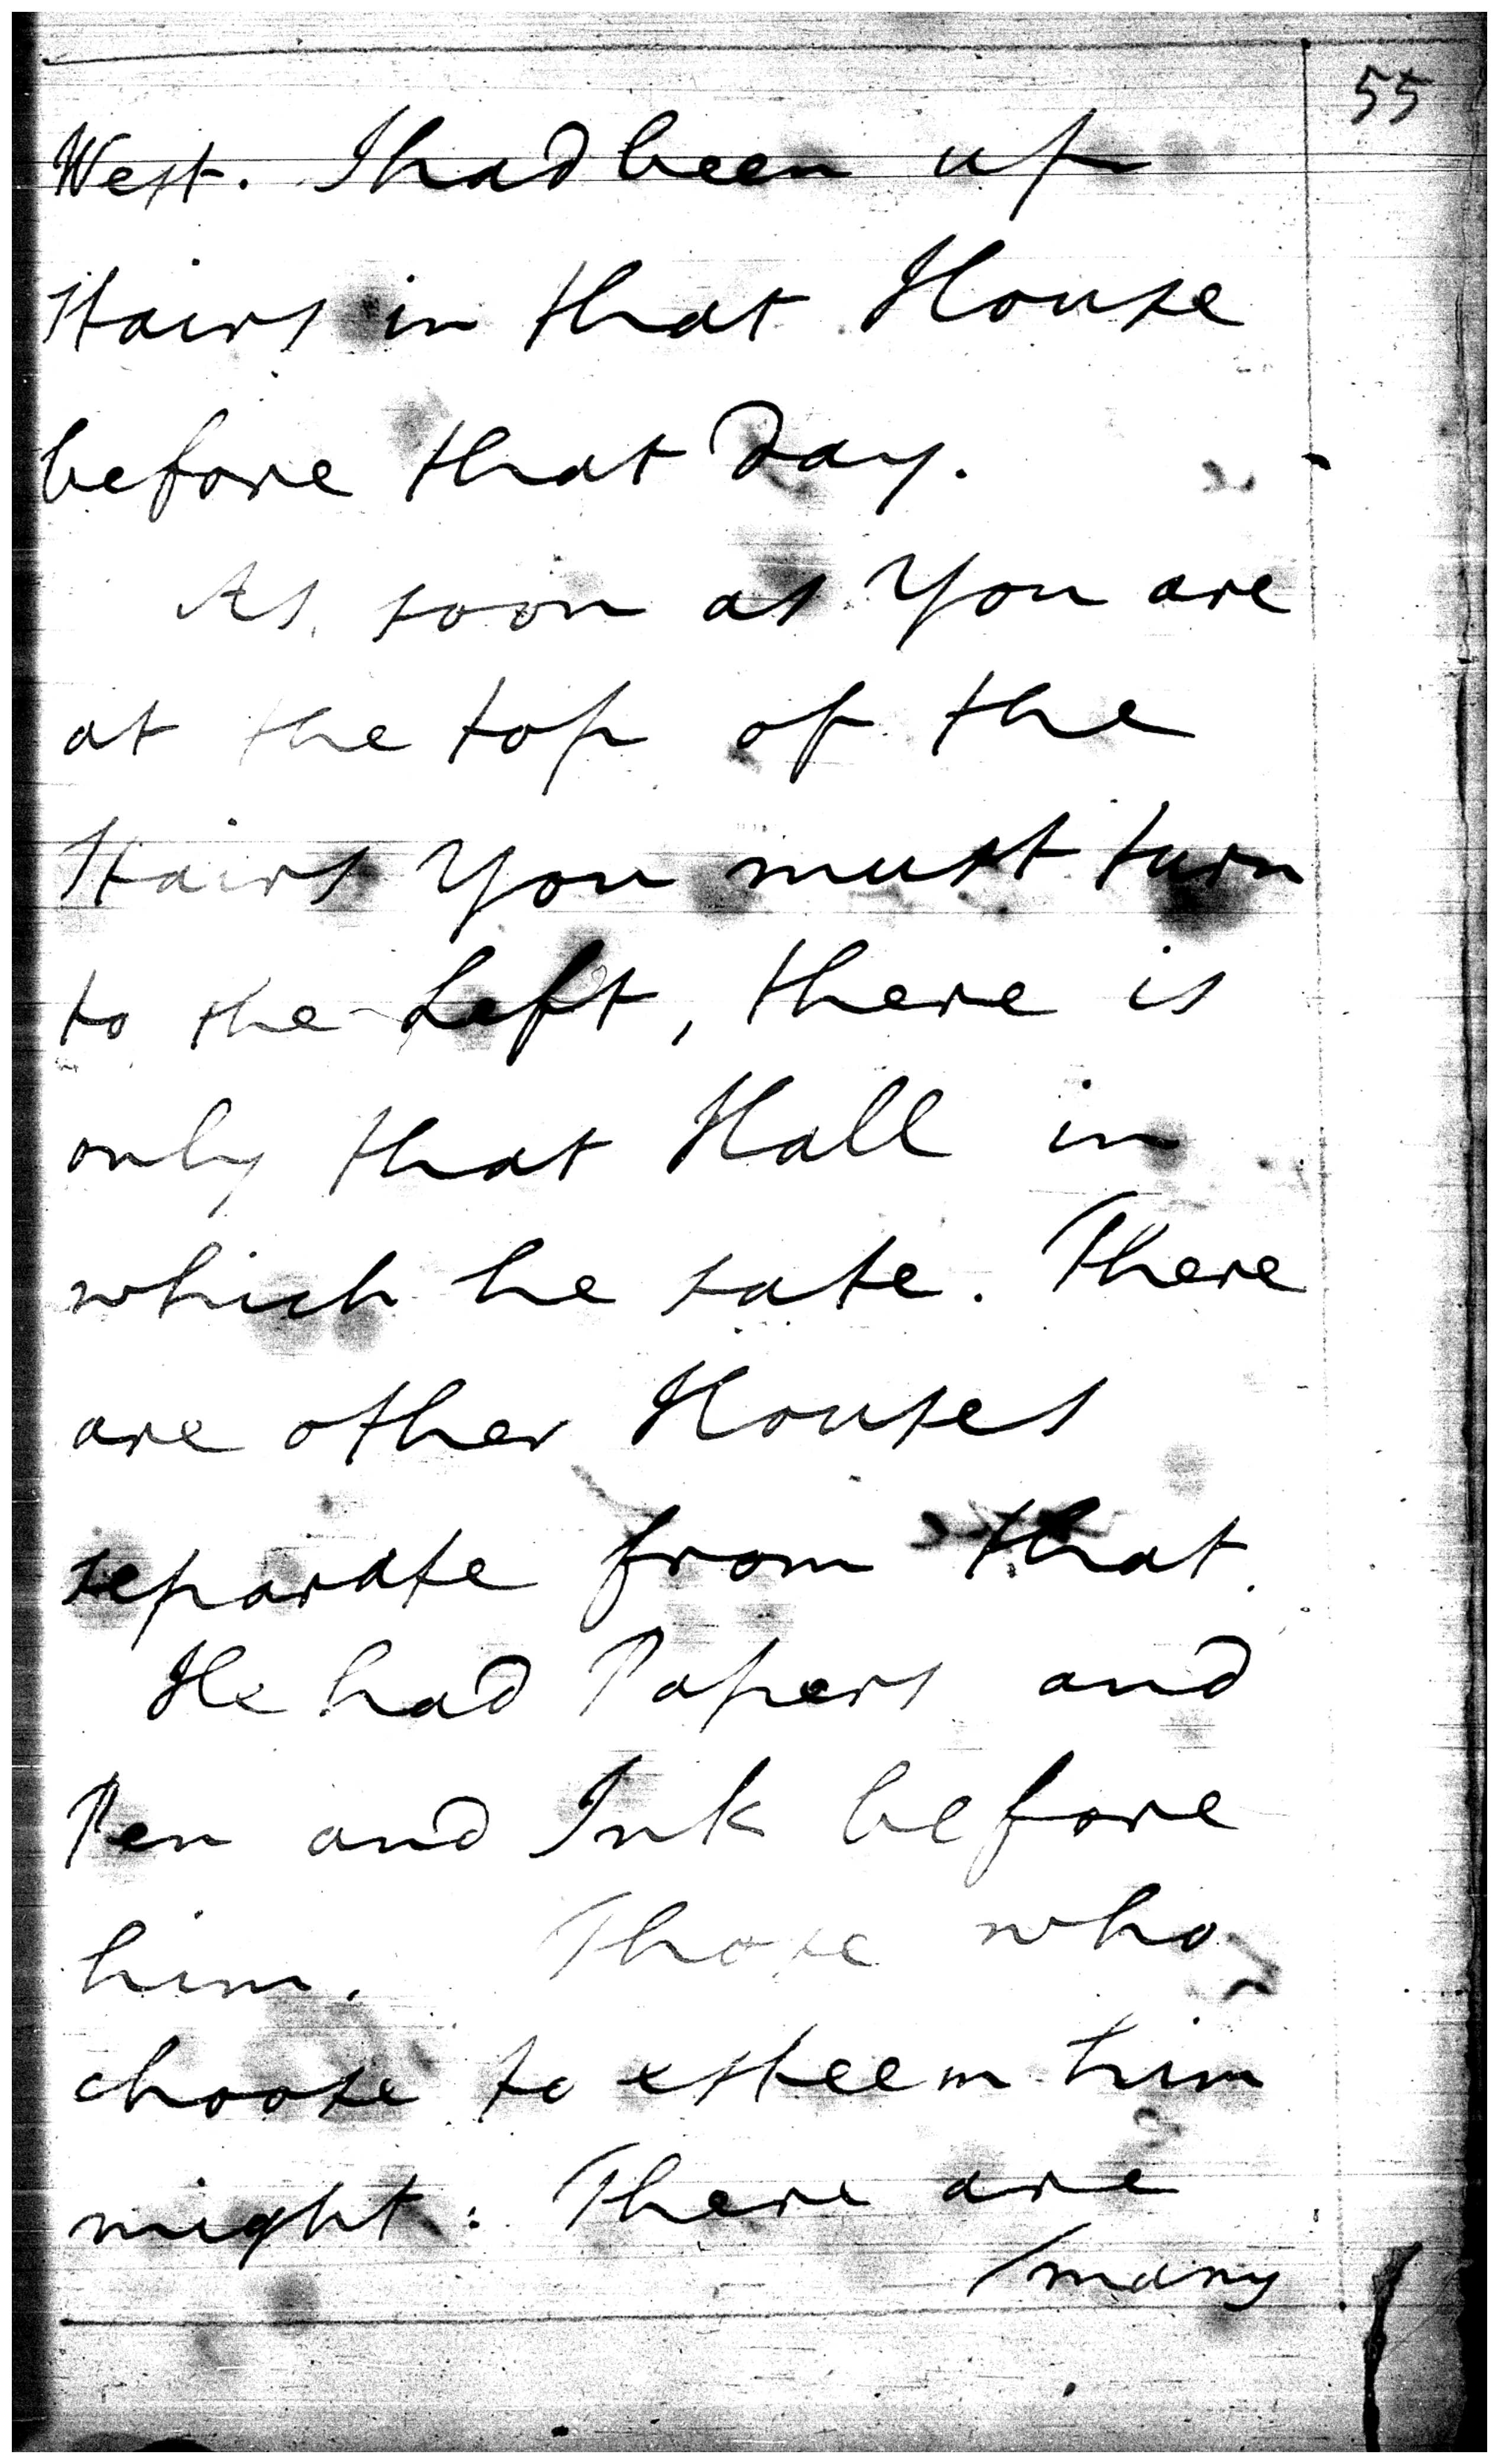 55
West. I had been up
stairs in that House
before that Day.
As soon as You are
at the top of the
Stairs You must turn
to the Left, there is
only that Hall in
which he sate. There
are other Houses
separate from that.
He had Papers and
Pen and Ink before
him. Those who
choose to esteem him
might: There are
/many